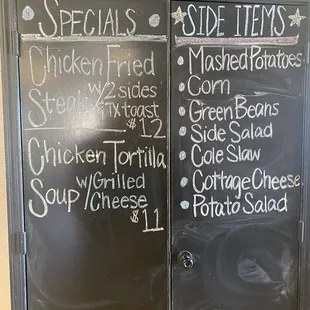 SPECIALS
Chicken Fried
Steak w/2 sides
& TX toast
$12
Chicken Tortilla
Soup w/Grilled
Cheese
$11
SIDE ITEMS
Mashed Potatoes
Corn
Green Beans
Side Salad
Cole Slaw
Cottage Cheese
Potato Salad